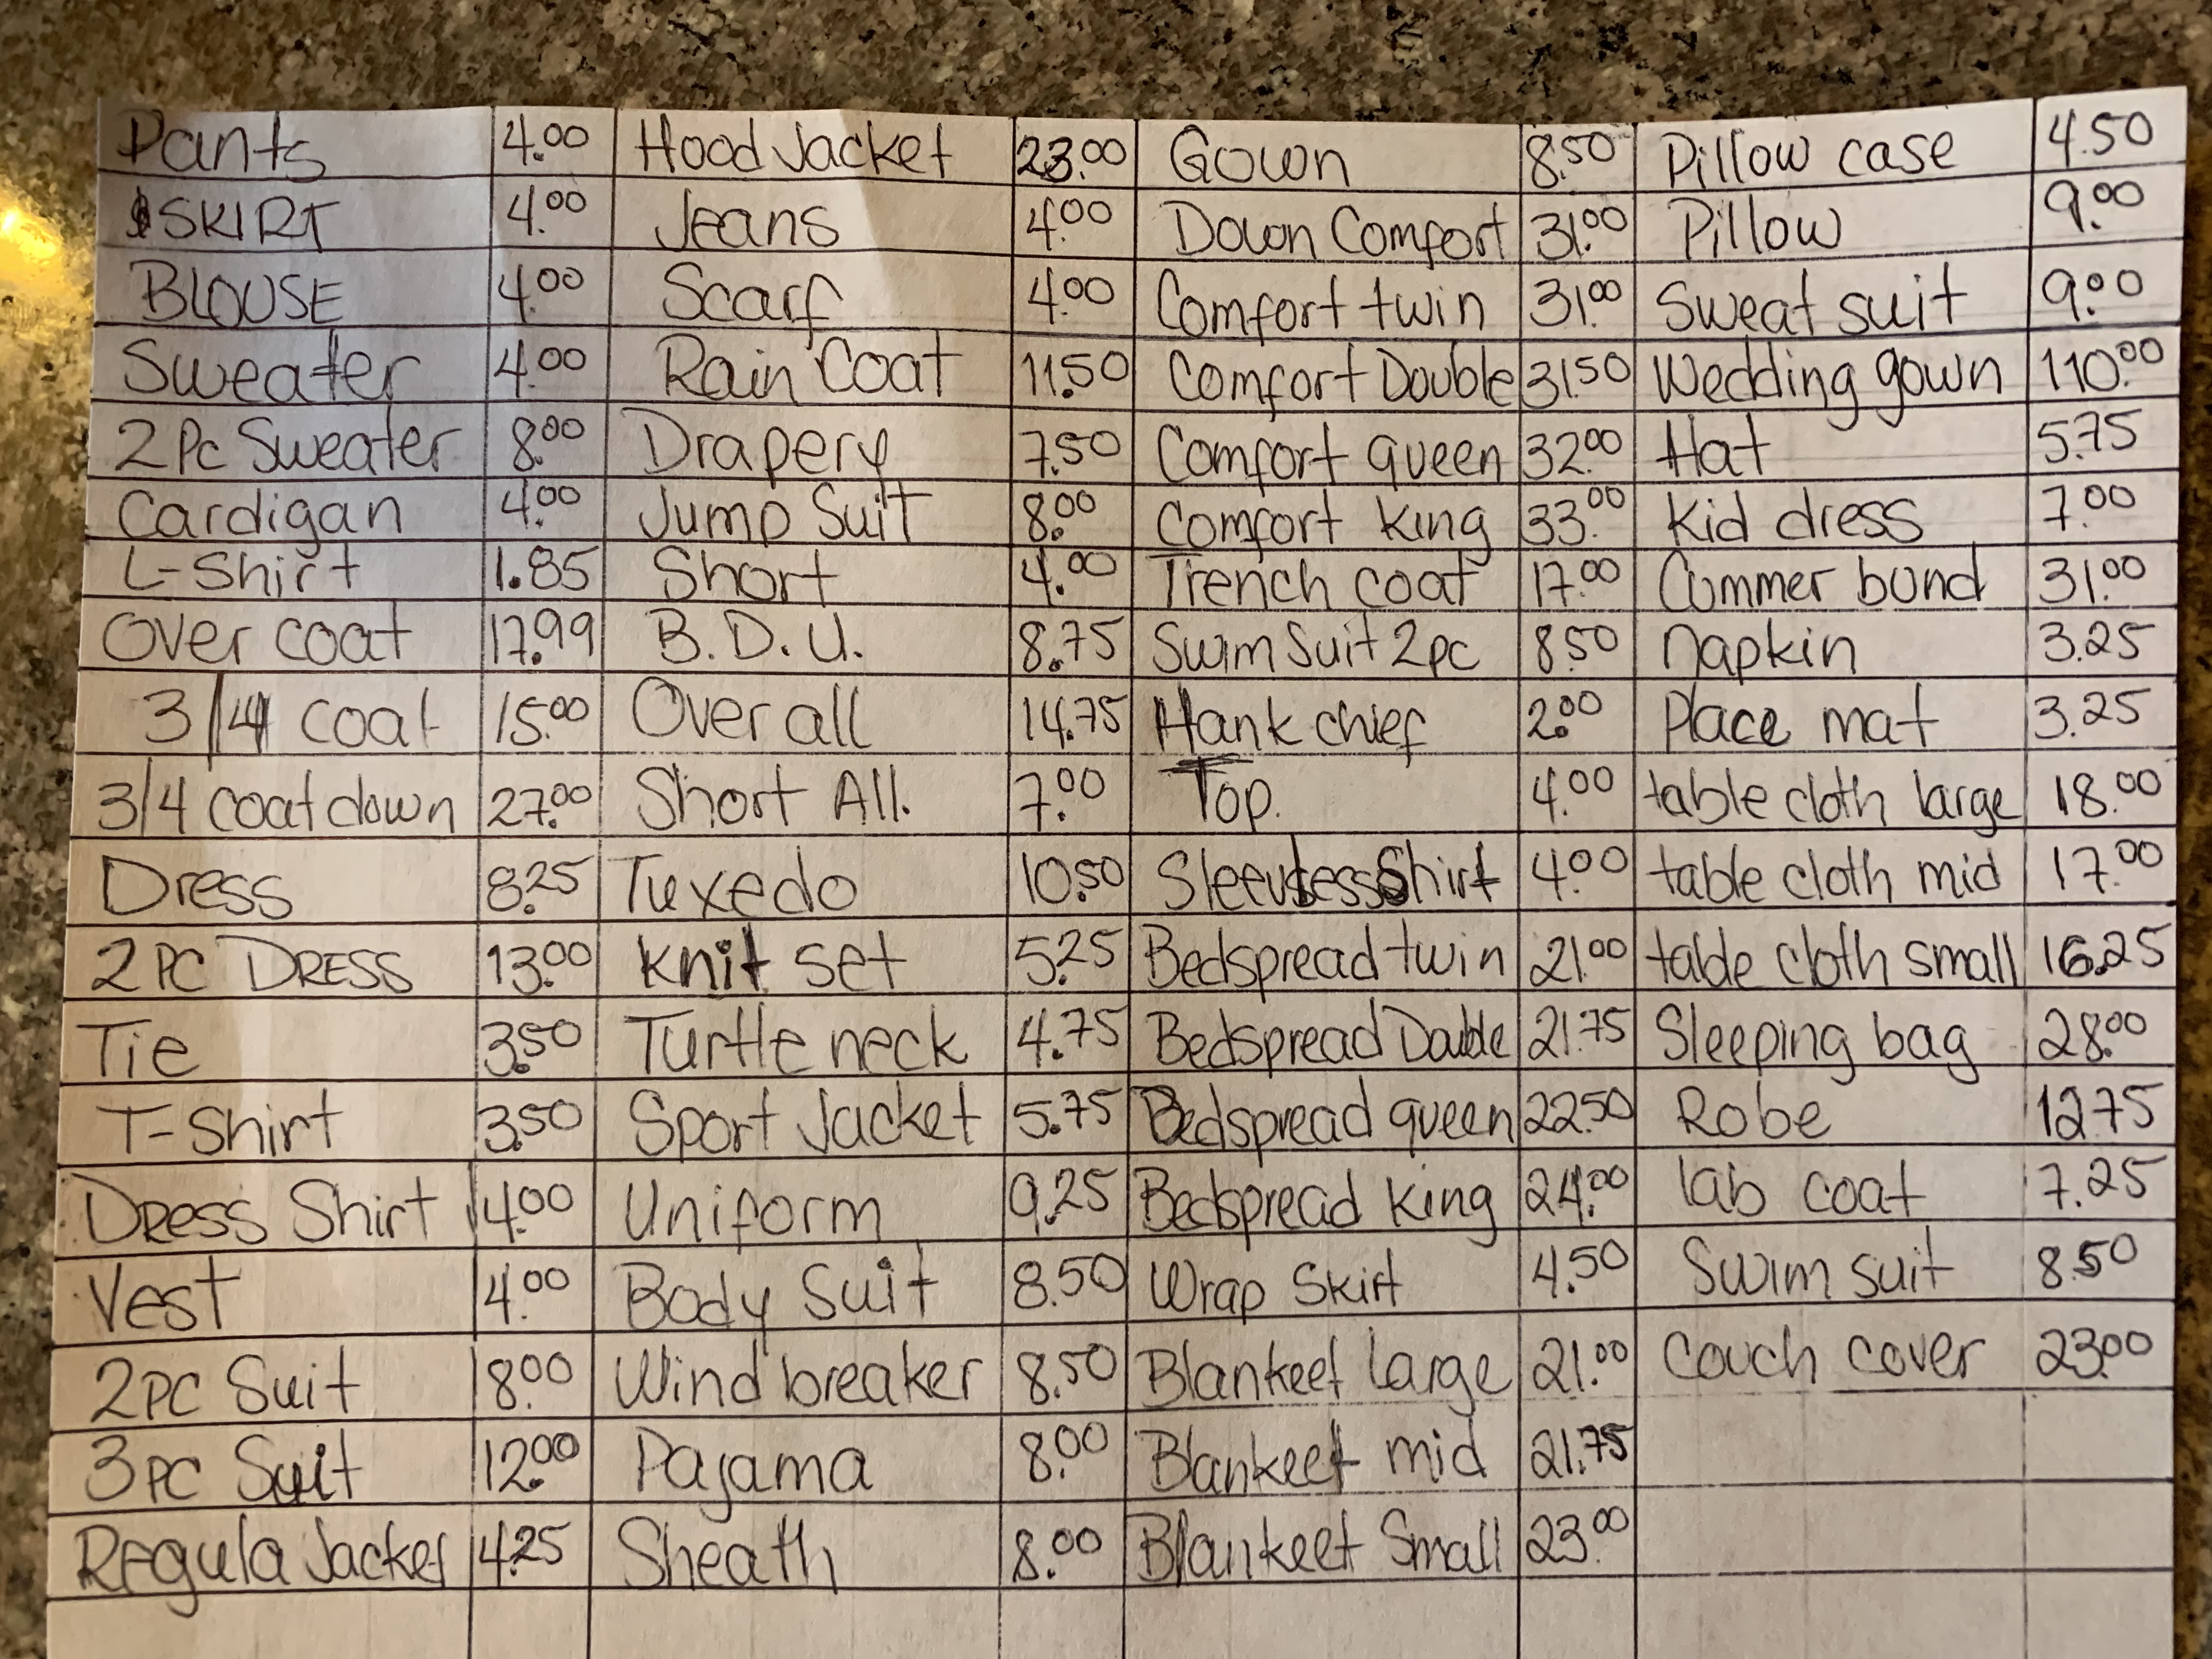 Pants 4.00 Hood Jacket 23.00 Gown 8.50 Pillow case 4.50
SKIRT 4.00 Jeans 4.00 Down Comfort 31.00 Pillow 9.00
BLOUSE 4.00 Scarf 4.00 Comfort twin 31.00 Sweat suit 9.00
Sweater 4.00 Rain Coat 11.50 Comfort Double 31.50 Wedding gown 110.00
2Pc Sweater 8.00 Drapery 7.50 Comfort queen 32.00 Hat 5.75
Cardigan 4.00 Jump Suit 8.00 Comfort king 33.00 Kid dress 7.00
L-Shirt 1.85 Short 4.00 Trench coat 17.00 Cummer bund 31.00
Over coat 17.99 B.D.U. 8.75 Swim Suit 2pc 8.50 napkin 3.25
3/4 coat 15.00 Over all 14.75 Hank chief 2.00 Place mat 3.25
3/4 coat down 27.00 Short All. 7.00 Top. 4.00 table cloth large 18.00
Dress 8.25 Tuxedo 10.50 Sleevless Shirt 4.00 table cloth mid 17.00
2PC DRESS 13.00 knit set 5.25 Bedspread twin 21.00 table cloth small 16.25
Tie 3.50 Turtle neck 4.75 Bedspread Double 21.75 Sleeping bag 28.00
T-Shirt 3.50 Sport Jacket 5.75 Bedspread queen 22.50 Robe 12.75
Dress Shirt 4.00 Uniform 9.25 Bedspread king 24.00 lab coat 7.25
Vest 4.00 Body Suit 8.50 Wrap Skirt 4.50 Swim suit 8.50
2PC Suit 8.00 Wind breaker 8.50 Blankeet large 21.00 Couch cover 23.00
3PC Suit 12.00 Pajama 8.00 Blankeet mid 21.75
Regula Jacker 4.25 Sheath 8.00 Blankeet Small 23.00